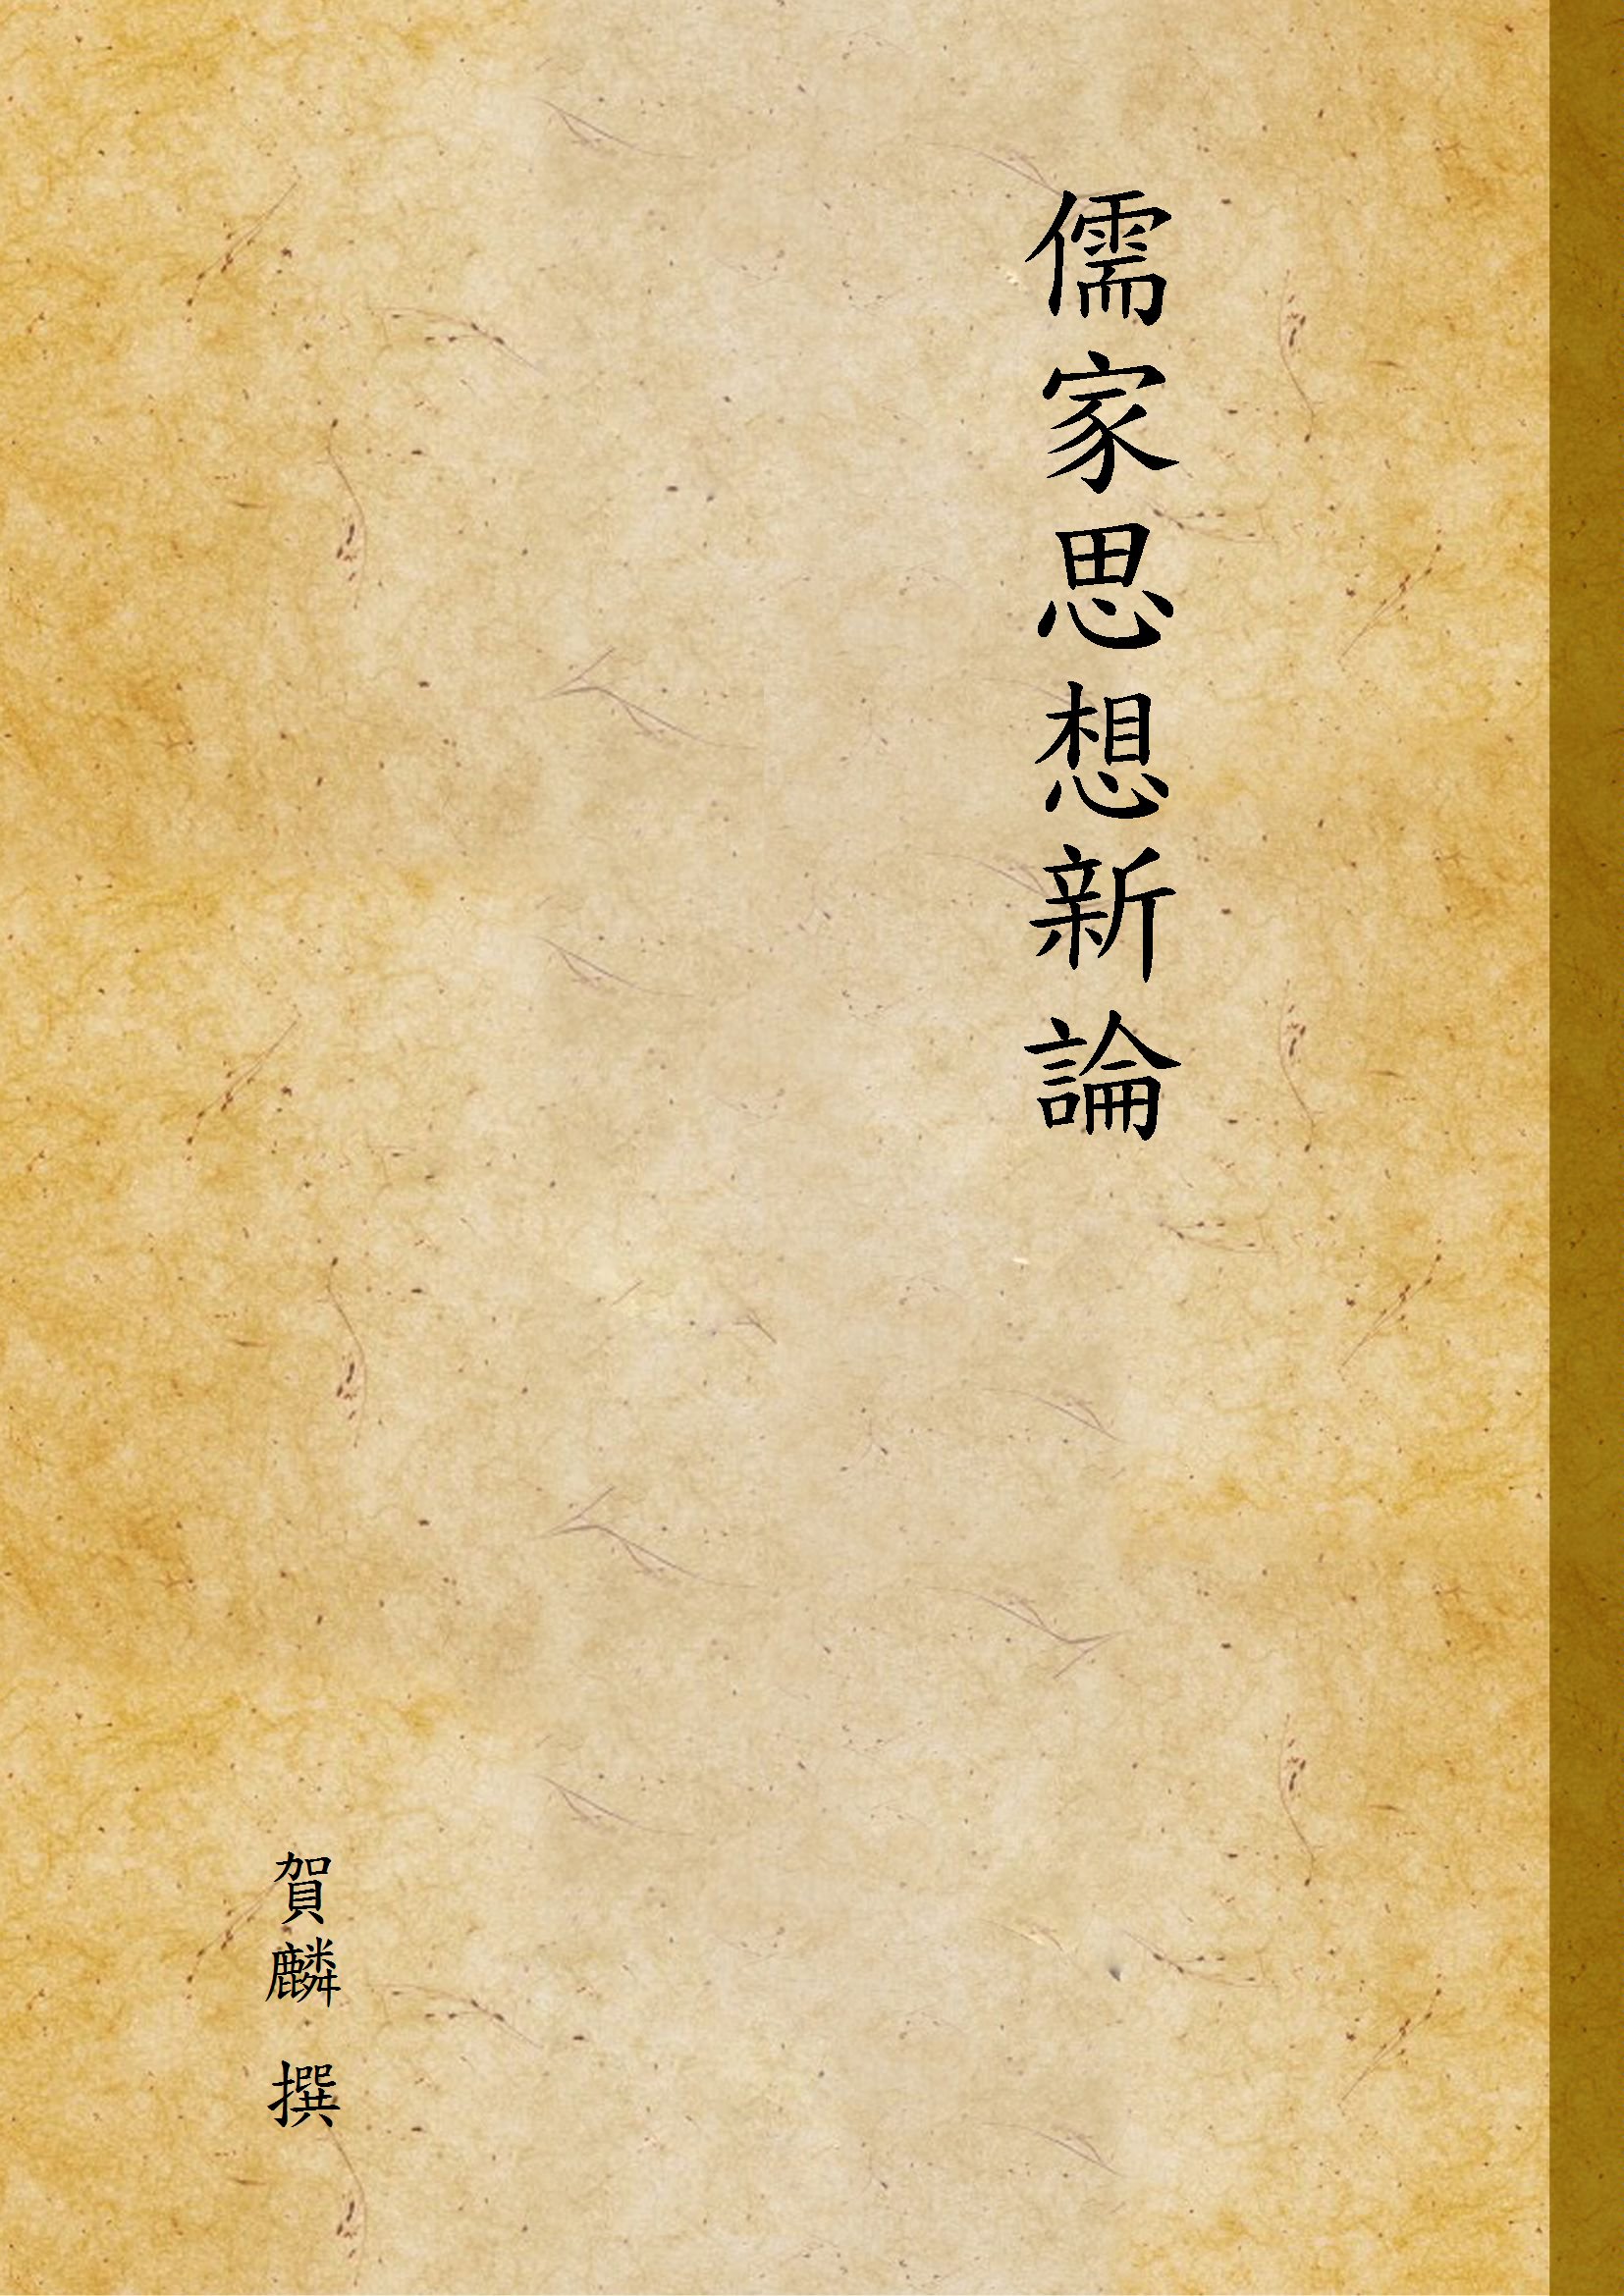 儒家思想新論
賀麟 撰